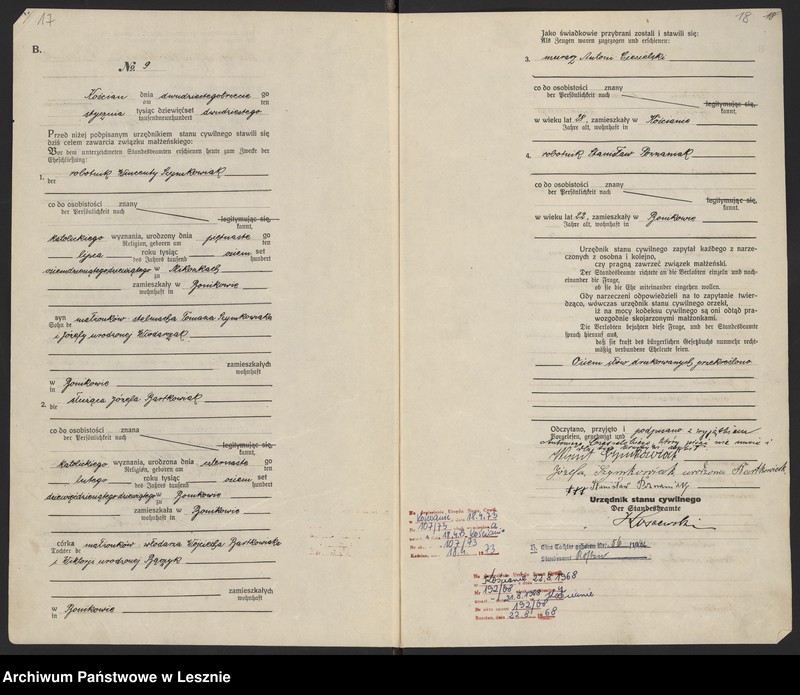 17
B.
No. 9
Kościan dnia dwudziestegotrzecie go
am ten
stycznia tysiąc dziewięćset dwudziestego
tausendneunhundert
Przed niżej podpisanym urzędnikiem stanu cywilnego stawili się
dziś celem zawarcia związku małżeńskiego:
Vor dem unterzeichneten Standesbeamten erschienen heute zum Zwecke der
Eheschließung:
1. robotnik Wincenty Szymkowiak
der
co do osobistości znany
der Persönlichkeit nach
legitymując się,
kannt,
katolickiego wyznania, urodzony dnia piętnaste go
Religion, geboren am ten
lipca roku tysiąc ośem set
des Jahres tausend hundert
w
zu
zamieszkały w Bonikowie
wohnhaft in
syn małżonków stelmacha Tomasza Szymkowiaka
Sohn de
i Józefy urodzonej Włodarczak
zamieszkałych
wohnhaft
w Bonikowie
in
2. służąca Józefa Bartkowiak
die
co do osobistości znana
der Persönlichkeit nach
legitymując się,
kannt,
katolickiego wyznania, urodzona dnia czternaste go
Religion, geboren am ten
lutego roku tysiąc ośem set
des Jahres tausend hundert
w Bonikowie
zu
zamieszkała w Bonikowie
wohnhaft in
córka małżonków włodarza Wojciecha Bartkowiaka
Tochter de
i Wiktoryi urodzonej
zamieszkałych
wohnhaft
w Bonikowie
in
18 18
Jako świadkowie przybrani zostali i stawili się:
Als Zeugen waren zugezogen und erschienen:
3. murarz Antoni Ciesielski
co do osobistości znany
der Persönlichkeit nach
legitymując się,
kannt.
w wieku lat 28, zamieszkały w Kościanie
Jahre alt, wohnhaft in
4. robotnik Stanisław Poznaniak
co do osobistości znany
der Persönlichkeit nach
legitymując się,
kannt.
w wieku lat 22, zamieszkały w Bonikowie
Jahre alt, wohnhaft in
Urzędnik stanu cywilnego zapytał każdego z narze-
czonych z osobna i kolejno,
czy pragną zawrzeć związek małżeński.
Der Standesbeamte richtete an die Verlobten einzeln und nach-
einander die Frage,
ob sie die Ehe miteinander eingehen wollen.
Gdy narzeczeni odpowiedzieli na to zapytanie twier-
dząco, wówczas urzędnik stanu cywilnego orzekł,
iż na mocy kodeksu cywilnego są oni obtąd pra-
wozgodnie skojarzonymi małżonkami.
Die Verlobten bejahten diese Frage, und der Standesbeamte
sprach hierauf aus,
daß sie kraft des bürgerlichen Gesetzbuchs nunmehr recht-
mäßig verbundene Eheleute seien.
Ośem słów drukowanych przekreślono
Odczytano, przyjęto i podpisano z wyjątkiem
Vorgelesen, genehmigt und
Antoniego Ciesielskiego, który pisać nie umie i
Szymkowiak
Józefa Szymkowiak urodzona Bartkowiak
+++ Stanisław Poznaniak
Urzędnik stanu cywilnego
Der Standesbeamte
Kościanie, dnia 18.4.73
107/73
107/73
18.4. 73
Kościanie 22.8.1968
192/68
21.8.1968 Kościanie
192/68
22.8. 68
Archiwum Państwowe w Lesznie